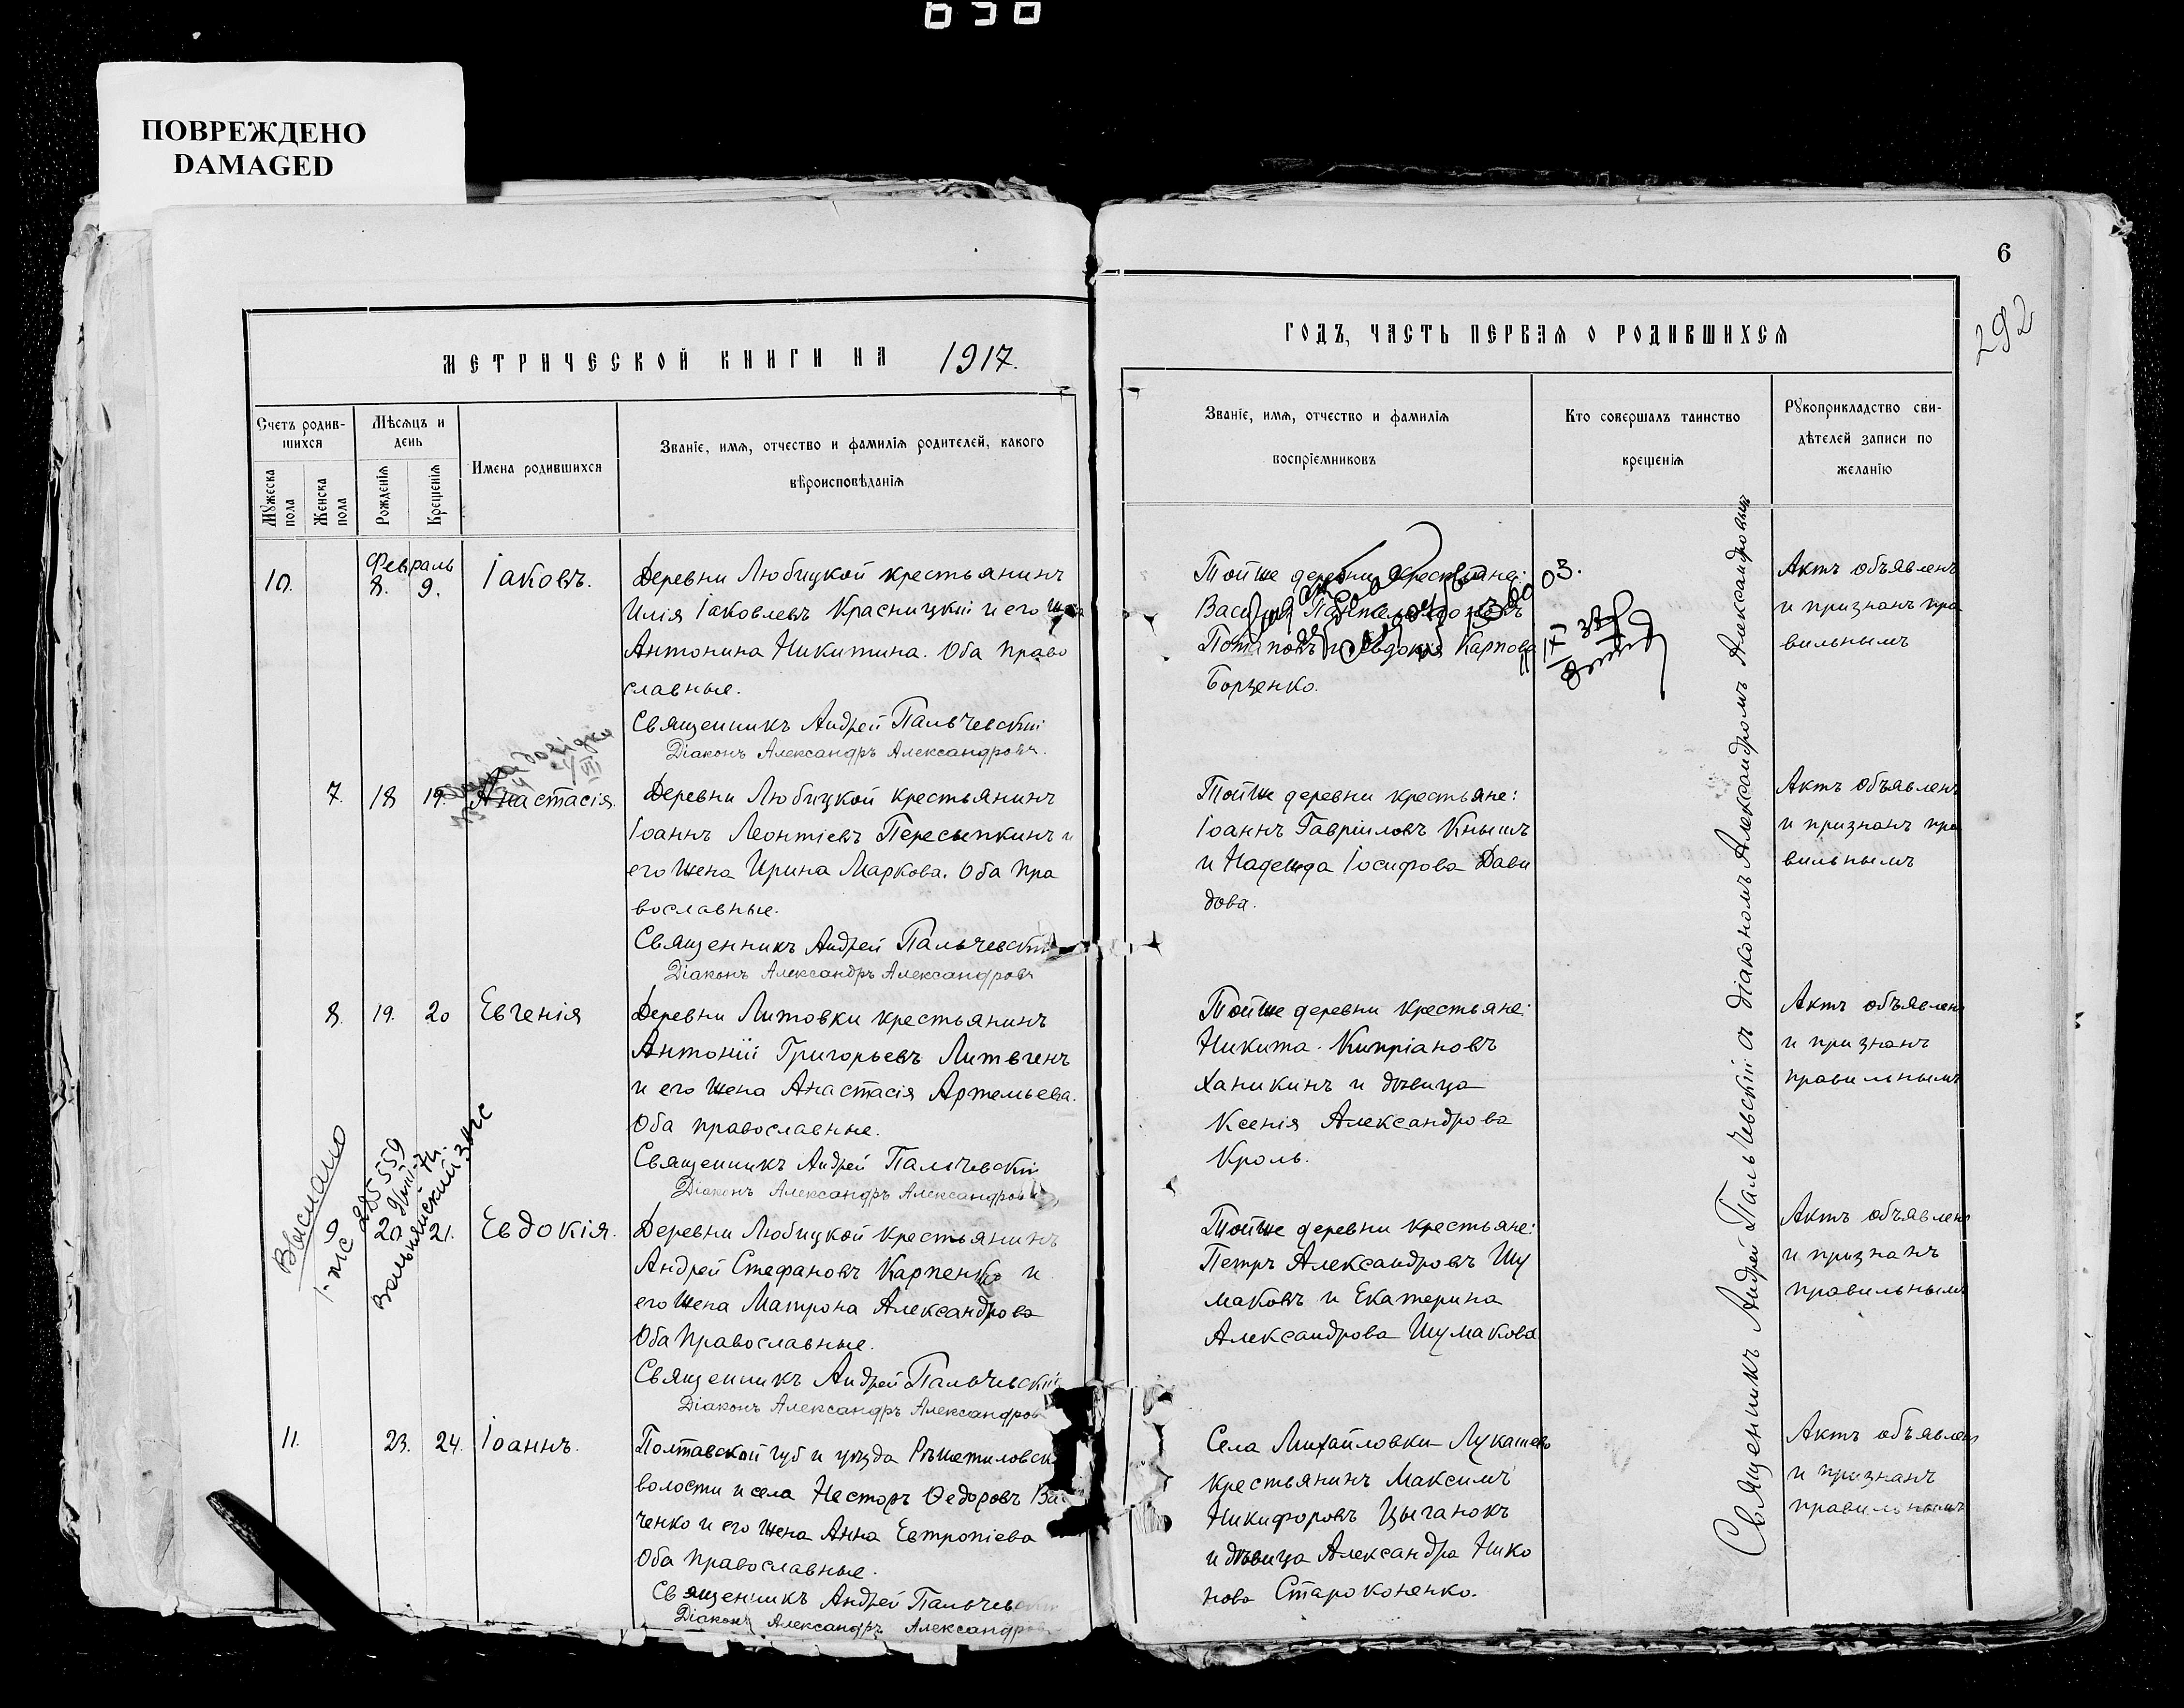 630
ПОВРЕЖДЕНО
DAMAGED
6
292
МЕТРИЧЕСКОЙ КНИГИ НА 1917.
ГОДЪ, ЧАСТЬ ПЕРВАЯ О РОДИВШИХСЯ
Счетъ родив-
шихся
Мужеска
пола
Женска
пола
Мѣсяцъ и
день
Рожденія
Крещенія
Имена родившихся
Званіе, имя, отчество и фамилія родителей, какого
вѣроисповѣданія
Званіе, имя, отчество и фамилія
воспріемниковъ
Кто совершалъ таинство
крещенія
Рукоприкладство сви-
дѣтелей записи по
желанію
Февраль
10. 8. 9. Іаковъ.
Деревни Любицкой крестьянинъ
Илія Іаковлевъ Красницкій и его жена
Антонина Никитина. Оба право
славные.
Священникъ Андрей Пальчевскій
Діаконъ Александръ Александровъ.
Тойже деревни крестьяне:
Василій Пантелеимоновъ
Потаповъ и Евдокія Карпова
Борзенко.
Актъ объявленъ
и признанъ пра
вильнымъ
7. 18 19. Анастасія.
Деревни Любицкой крестьянинъ
Іоаннъ Леонтіевъ Пересыпкинъ и
его жена Ирина Маркова. Оба пра
вославные.
Священникъ Андрей Пальчевскій
Діаконъ Александръ Александровъ
Тойже деревни крестьяне:
Іоаннъ Гавріиловъ Кнышъ
и Надежда Іосифова Дави
дова.
Актъ объявленъ
и признанъ пра
вильнымъ
8. 19. 20 Евгенія
Деревни Литовки крестьянинъ
Антоній Григорьевъ Литвгенъ
и его жена Анастасія Артемьева.
Оба православные.
Священникъ Андрей Пальчевскій
Діаконъ Александръ Александровъ
Тойже деревни крестьяне:
Никита Кипріановъ
Ханикинъ и дѣвица
Ксенія Александрова
Кроль.
Актъ объявленъ
и признанъ
правильнымъ
Выслано
1. пис 285559
Вольнянский ЗАГС
9 20. 21. Евдокія.
Деревни Любицкой крестьянинъ
Андрей Стефановъ Карпенко и
его жена Матрона Александрова
Оба православные.
Священникъ Андрей Пальчевскій
Діаконъ Александръ Александров
Тойже деревни крестьяне:
Петръ Александровъ Шу
маковъ и Екатерина
Александрова Шумакова
Актъ объявленъ
и признанъ
правильнымъ
11. 23. 24. Іоаннъ.
Полтавской губ и уѣзда Рѣшетиловск
волости и села Несторъ Ѳедоровъ Ва
ченко и его жена Анна Евтропіева
Оба православные.
Священникъ Андрей Пальчев
Діаконъ Александръ Александров
Села Михайловки-Лукашево
крестьянинъ Максимъ
Никифоровъ Цыганокъ
и дѣвица Александра Нико
нова Староконенко.
Актъ объявленъ
и признанъ
правильнымъ
Священникъ Андрей Пальчевскій съ діакономъ Александромъ Александровымъ